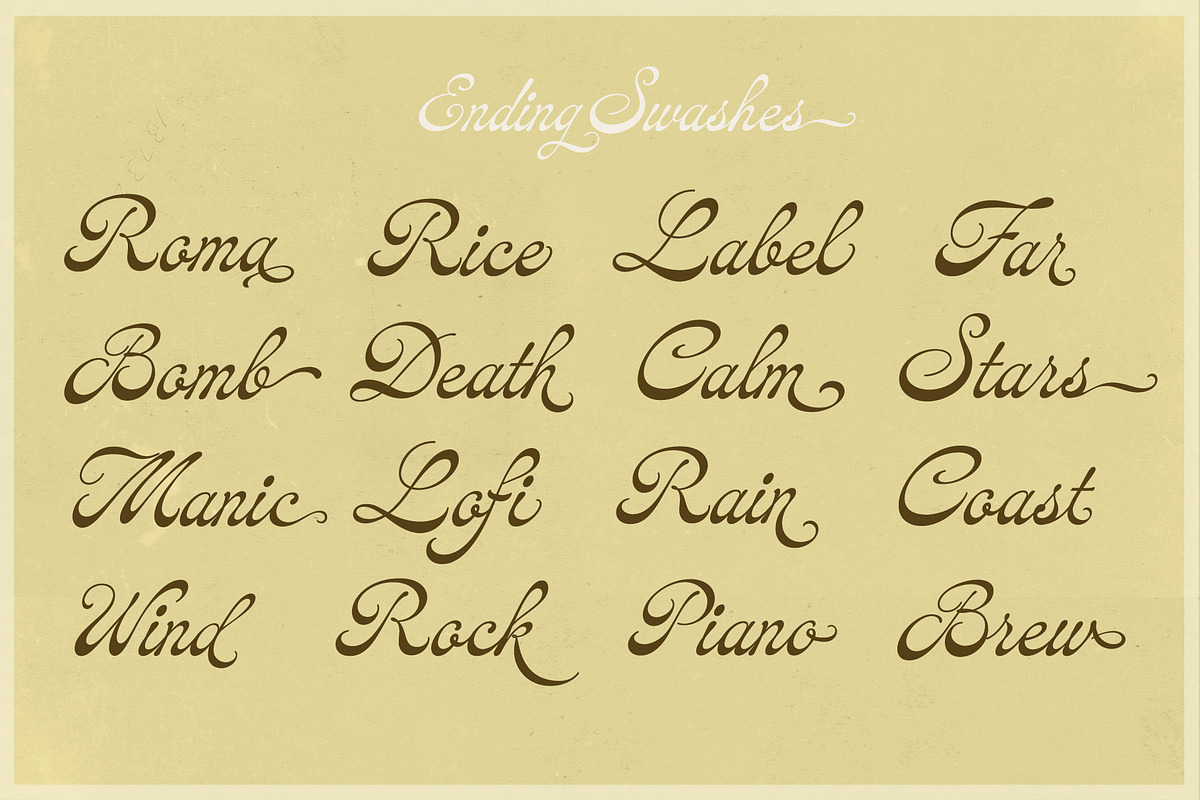 Ending Swashes
Roma Rice Label Far
Bomb Death Calm Stars
Manic Lofi Rain Coast
Wind Rock Piano Brew